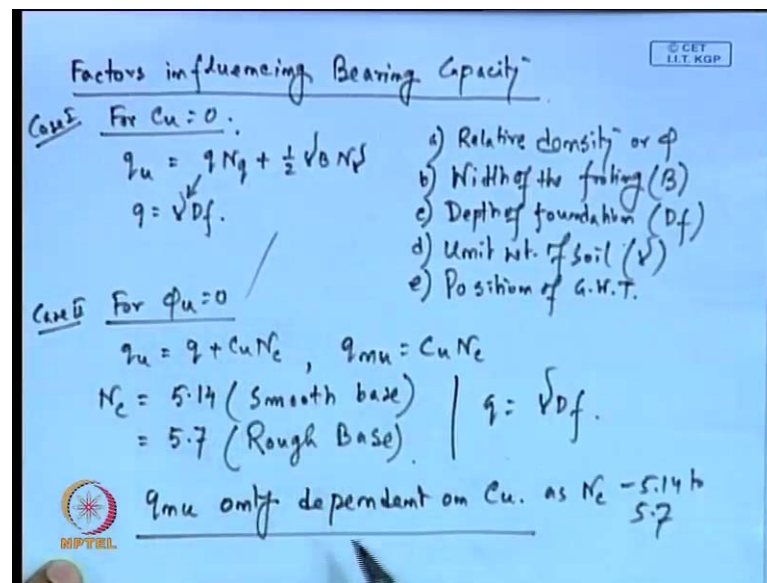 © CET
I.I.T. KGP
Factors influencing Bearing Capacity
Case I For Cu = 0.
qu = qNq + 1/2 γB Nγ
q = γDf.
a) Relative density or φ
b) Width of the footing (B)
c) Depth of foundation (Df)
d) Unit wt. of soil (γ)
e) Position of G.W.T.
Case II For φu = 0
qu = q + CuNc , qnu = CuNc
Nc = 5.14 (Smooth base)
= 5.7 (Rough Base)
q = γDf.
qnu only dependent on Cu. as Nc - 5.14 to
5.7
NPTEL